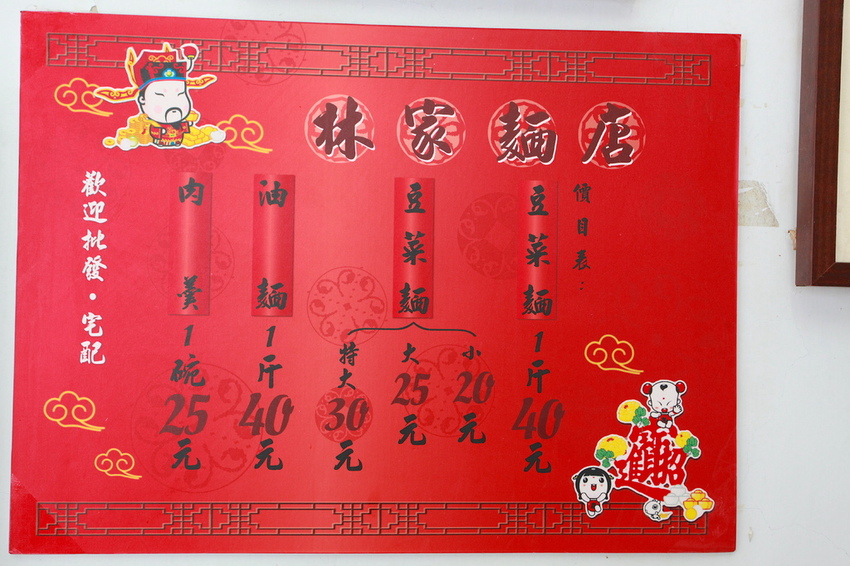 林家麵店
價目表：
豆菜麵 1斤 40元
豆菜麵
小 20元
大 25元
特大 30元
油麵 1斤 40元
肉羹 1碗 25元
歡迎批發・宅配
招財進寶